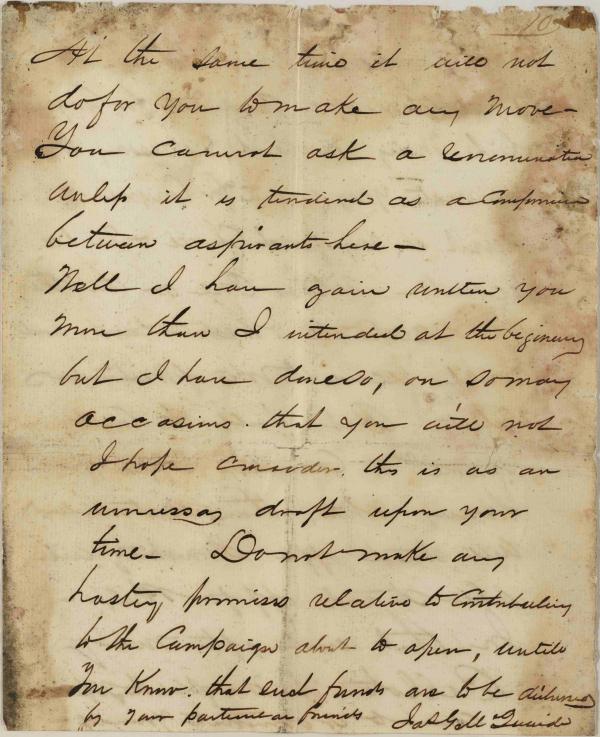 10
At the same time it will not
do for you to make any move—
You cannot ask a renomination
unless it is tendered as a Compromise
between aspirants here—
Well I have again written you
more than I intended at the beginning
but I have done so, on so many
occasions. that you will not
I hope consider. this is as an
unnecessay draft upon your
time— Do not make any
hasty promises relative to Contributing
to the Campaign about to open, until
you Know. that such funds are to be disbursed
by your particular friends Jas